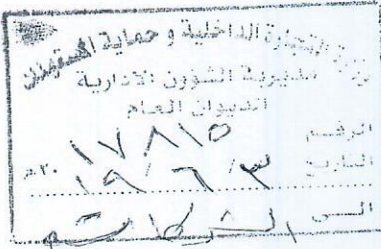 وزارة التجارة الداخلية و حماية المستهلك
مديرية الشؤون الادارية
الديوان العام
الرقم ١٧٨١٥
التاريخ ١٩/٦/٣ ٢٠ م
الى